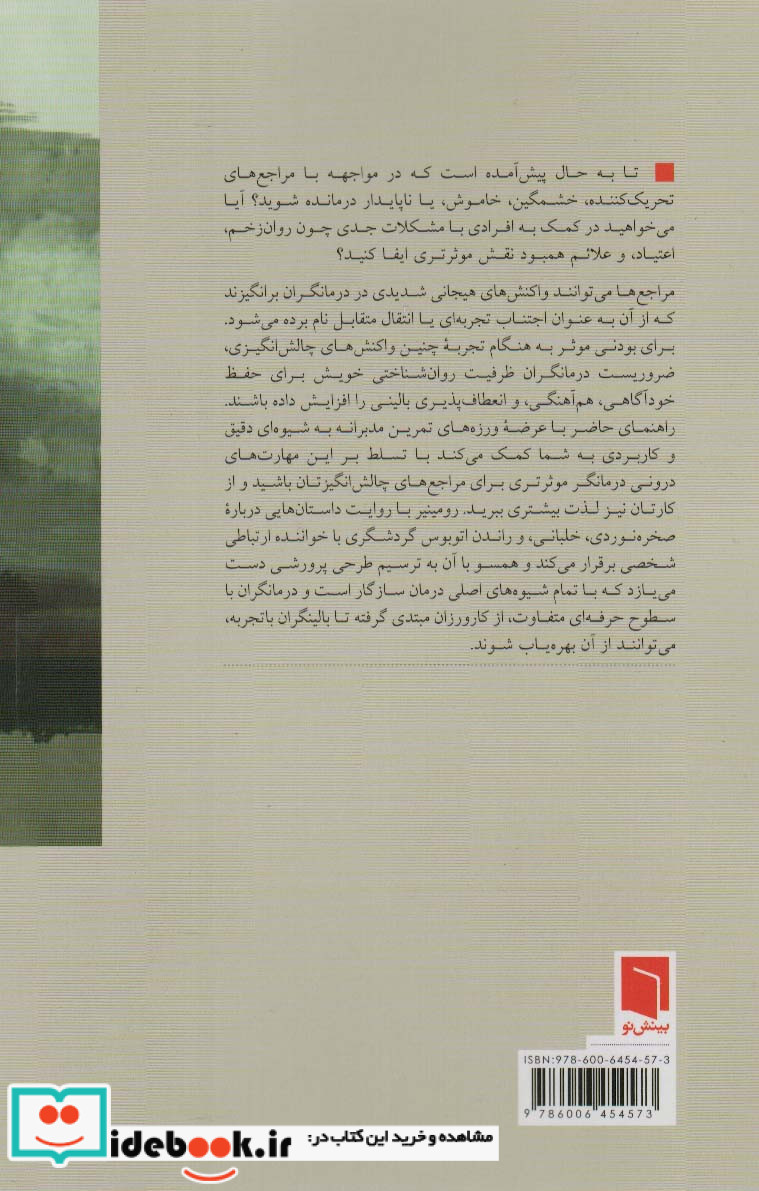 تا به حال پیش‌آمده است که در مواجهه با مراجع‌های
تحریک‌کننده، خشمگین، خاموش، یا ناپایدار درمانده شوید؟ آیا
می‌خواهید در کمک به افرادی با مشکلات جدی چون روان‌زخم،
اعتیاد، و علائم همبود نقش موثرتری ایفا کنید؟
مراجع‌ها می‌توانند واکنش‌های هیجانی شدیدی در درمانگران برانگیزند
که از آن به عنوان اجتناب تجربه‌ای یا انتقال متقابل نام برده می‌شود.
برای بودنی موثر به هنگام تجربهٔ چنین واکنش‌های چالش‌انگیزی،
ضروریست درمانگران ظرفیت روان‌شناختی خویش برای حفظ
خودآگاهی، هم‌آهنگی، و انعطاف‌پذیری بالینی را افزایش داده باشند.
راهنمای حاضر با عرضهٔ ورزه‌های تمرین مدبرانه به شیوه‌ای دقیق
و کاربردی به شما کمک می‌کند با تسلط بر این مهارت‌های
درونی درمانگر موثرتری برای مراجع‌های چالش‌انگیزتان باشید و از
کارتان نیز لذت بیشتری ببرید. رومینیر با روایت داستان‌هایی دربارهٔ
صخره‌نوردی، خلبانی، و راندن اتوبوس گردشگری با خواننده ارتباطی
شخصی برقرار می‌کند و همسو با آن به ترسیم طرحی پرورشی دست
می‌یازد که با تمام شیوه‌های اصلی درمان سازگار است و درمانگران با
سطوح حرفه‌ای متفاوت، از کارورزان مبتدی گرفته تا بالینگران باتجربه،
می‌توانند از آن بهره‌یاب شوند.
بینش‌نو
ISBN:978-600-6454-57-3
9 786006 454573
مشاهده و خرید این کتاب در:
idebook.ir